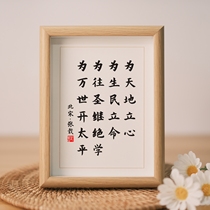 为天地立心
为生民立命
为往圣继绝学
为万世开太平
北宋·张载